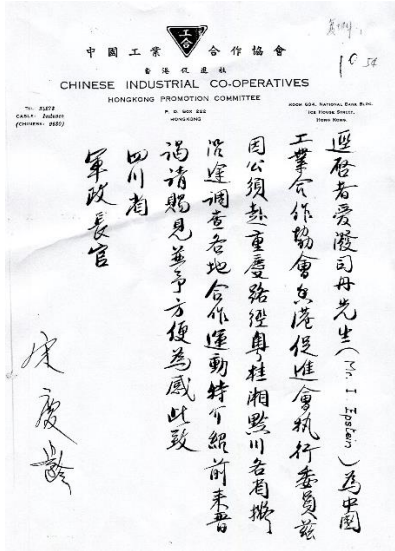 工合
中國工業合作協會
香港促進社
CHINESE INDUSTRIAL CO-OPERATIVES
HONGKONG PROMOTION COMMITTEE
P. O. BOX 222
HONGKONG
ROOM 604, NATIONAL BANK BLDG.
ICE HOUSE STREET,
HONG KONG
逕啟者愛潑司丹先生(Mr. I. Epstein)為中國
工業合作協會香港促進會執行委員茲
因公須赴重慶路經粵桂湘黔川各省擬
沿途調查各地合作運動特介紹前來晉
謁請賜見並予方便為感此致
四川省
軍政長官
宋慶齡